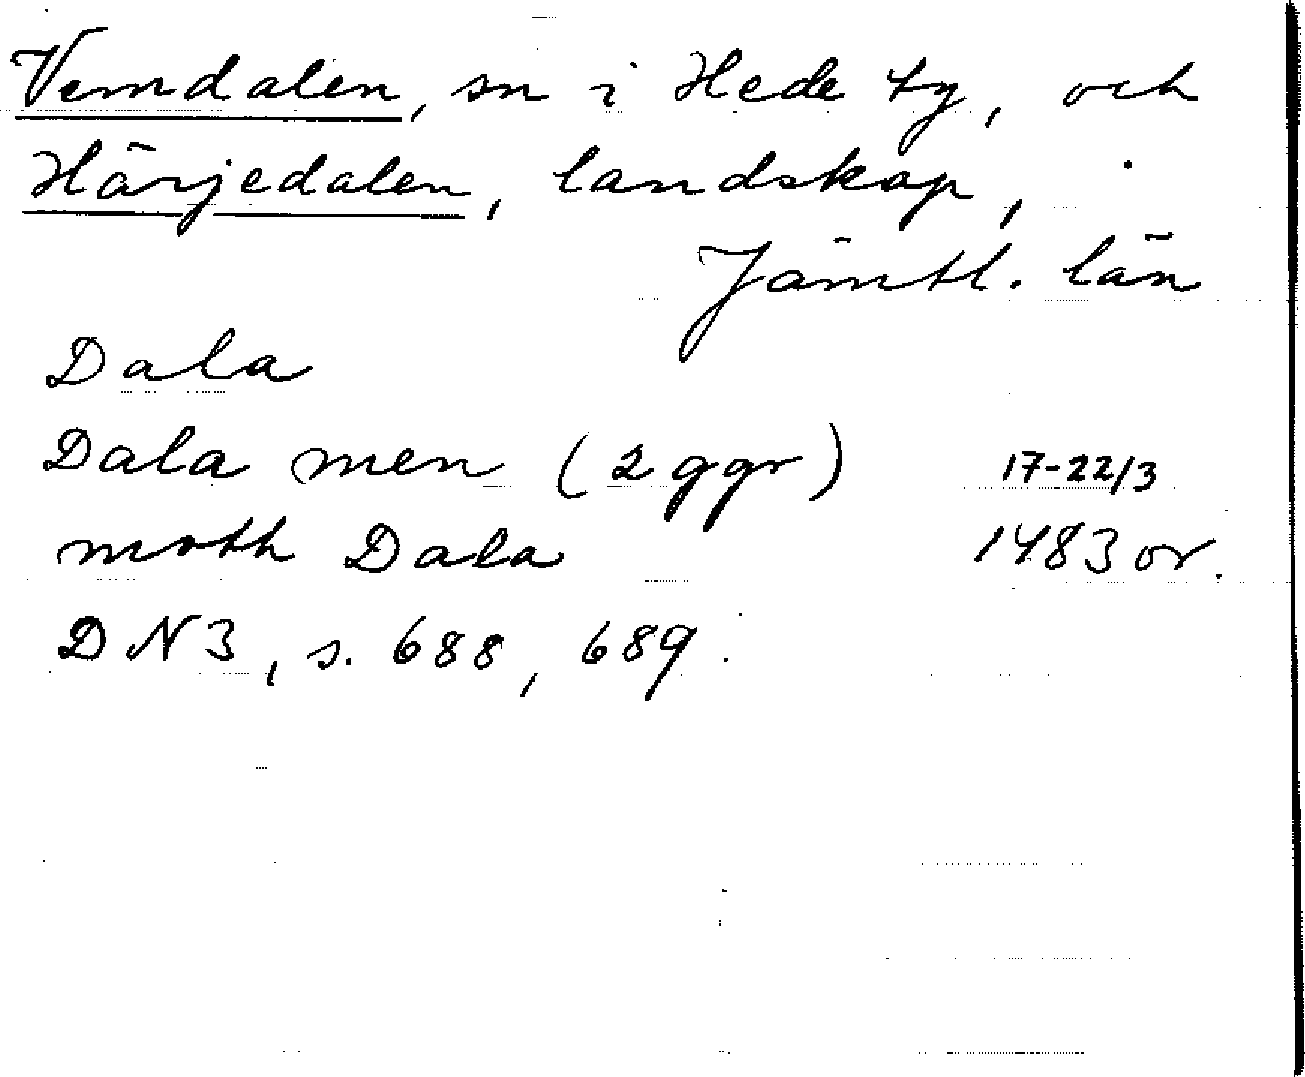 Vemdalen, sn i Hede tg, och
Härjedalen, landskap,
Jämtl. län
Dala
Dala men (2 ggr) 17-22/3
moth Dala 1483 or.
DN 3, s. 688, 689.